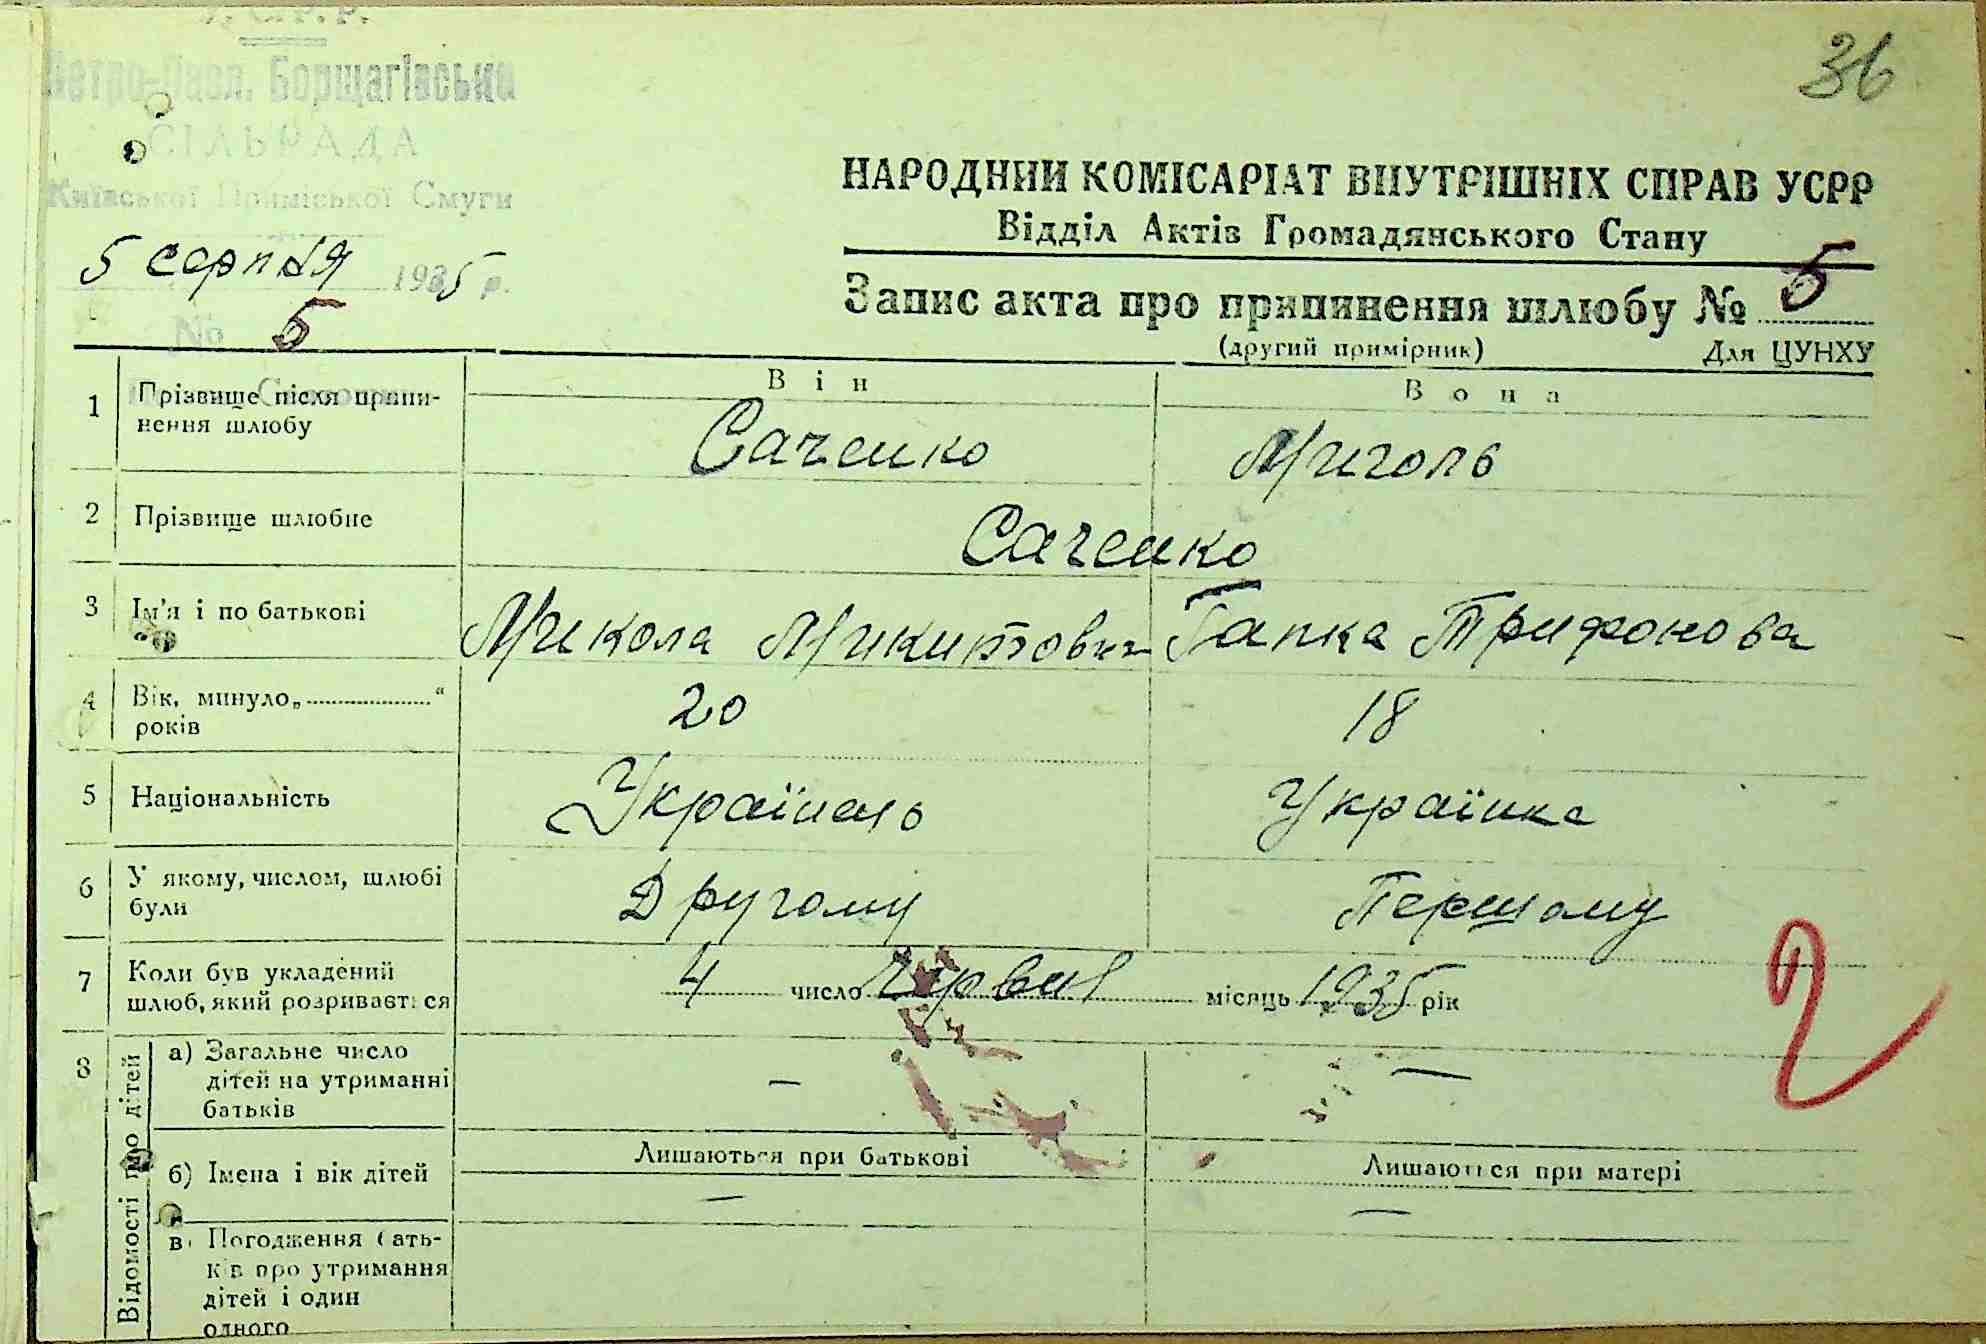 У. С. Р. Р.
Петро-Павл. Борщагівська
СІЛЬРАДА
Київської Приміської Смуги
5 серпня 1935 р.
№ 5
36
НАРОДНИЙ КОМІСАРІАТ ВНУТРІШНІХ СПРАВ УСРР
Відділ Актів Громадянського Стану
Запис акта про припинення шлюбу № 5
(другий примірник) Для ЦУНХУ
Він Вона
1 Прізвище після припи-
нення шлюбу
Саченко Миголь
2 Прізвище шлюбне Саченко
3 Ім'я і по батькові Микола Микитович Гапка Трифонова
4 Вік, минуло „ “
років
20 18
5 Національність Українець Українка
6 У якому, числом, шлюбі
були
Другому Першому
7 Коли був укладений
шлюб, який розривається
4 число Червня місяць 1935 рік
2
8 Відомості про дітей
а) Загальне число
дітей на утриманні
батьків
— —
Лишаються при батькові Лишаються при матері
б) Імена і вік дітей — —
в) Погодження бать-
ків про утримання
дітей і один
одного